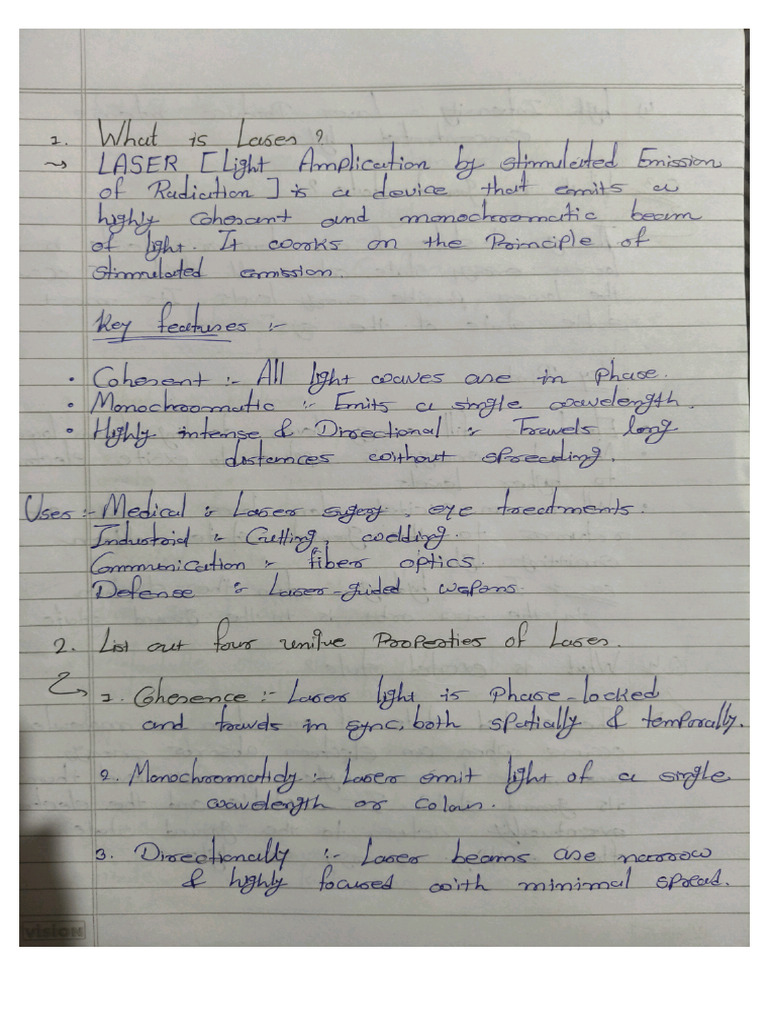 1. What is Laser ?
→ LASER [Light Amplication by stimulated Emission
of Radiation] is a device that emits a
highly coherant and monochromatic beam
of light. It works on the Principle of
stimulated emission.
Key features :-
• Coherent :- All light waves are in phase.
• Monochromatic :- Emits a single wavelength.
• Highly intense & Directional :- Travels long
distances without spreading.
Uses :- Medical :- Laser sugery, eye treatments.
Industrial :- Cutting, welding.
Communication :- fiber optics.
Defense :- Laser-guided wepons.
2. List out four unique Properties of Laser.
→ 1. Coherence :- Laser light is Phase-locked
and travels in sync, both spatially & temporally.
2. Monochromaticity :- Laser emit light of a single
wavelength or colour.
3. Directionally :- Laser beams are narrow
& highly focused with minimal spread.
vision